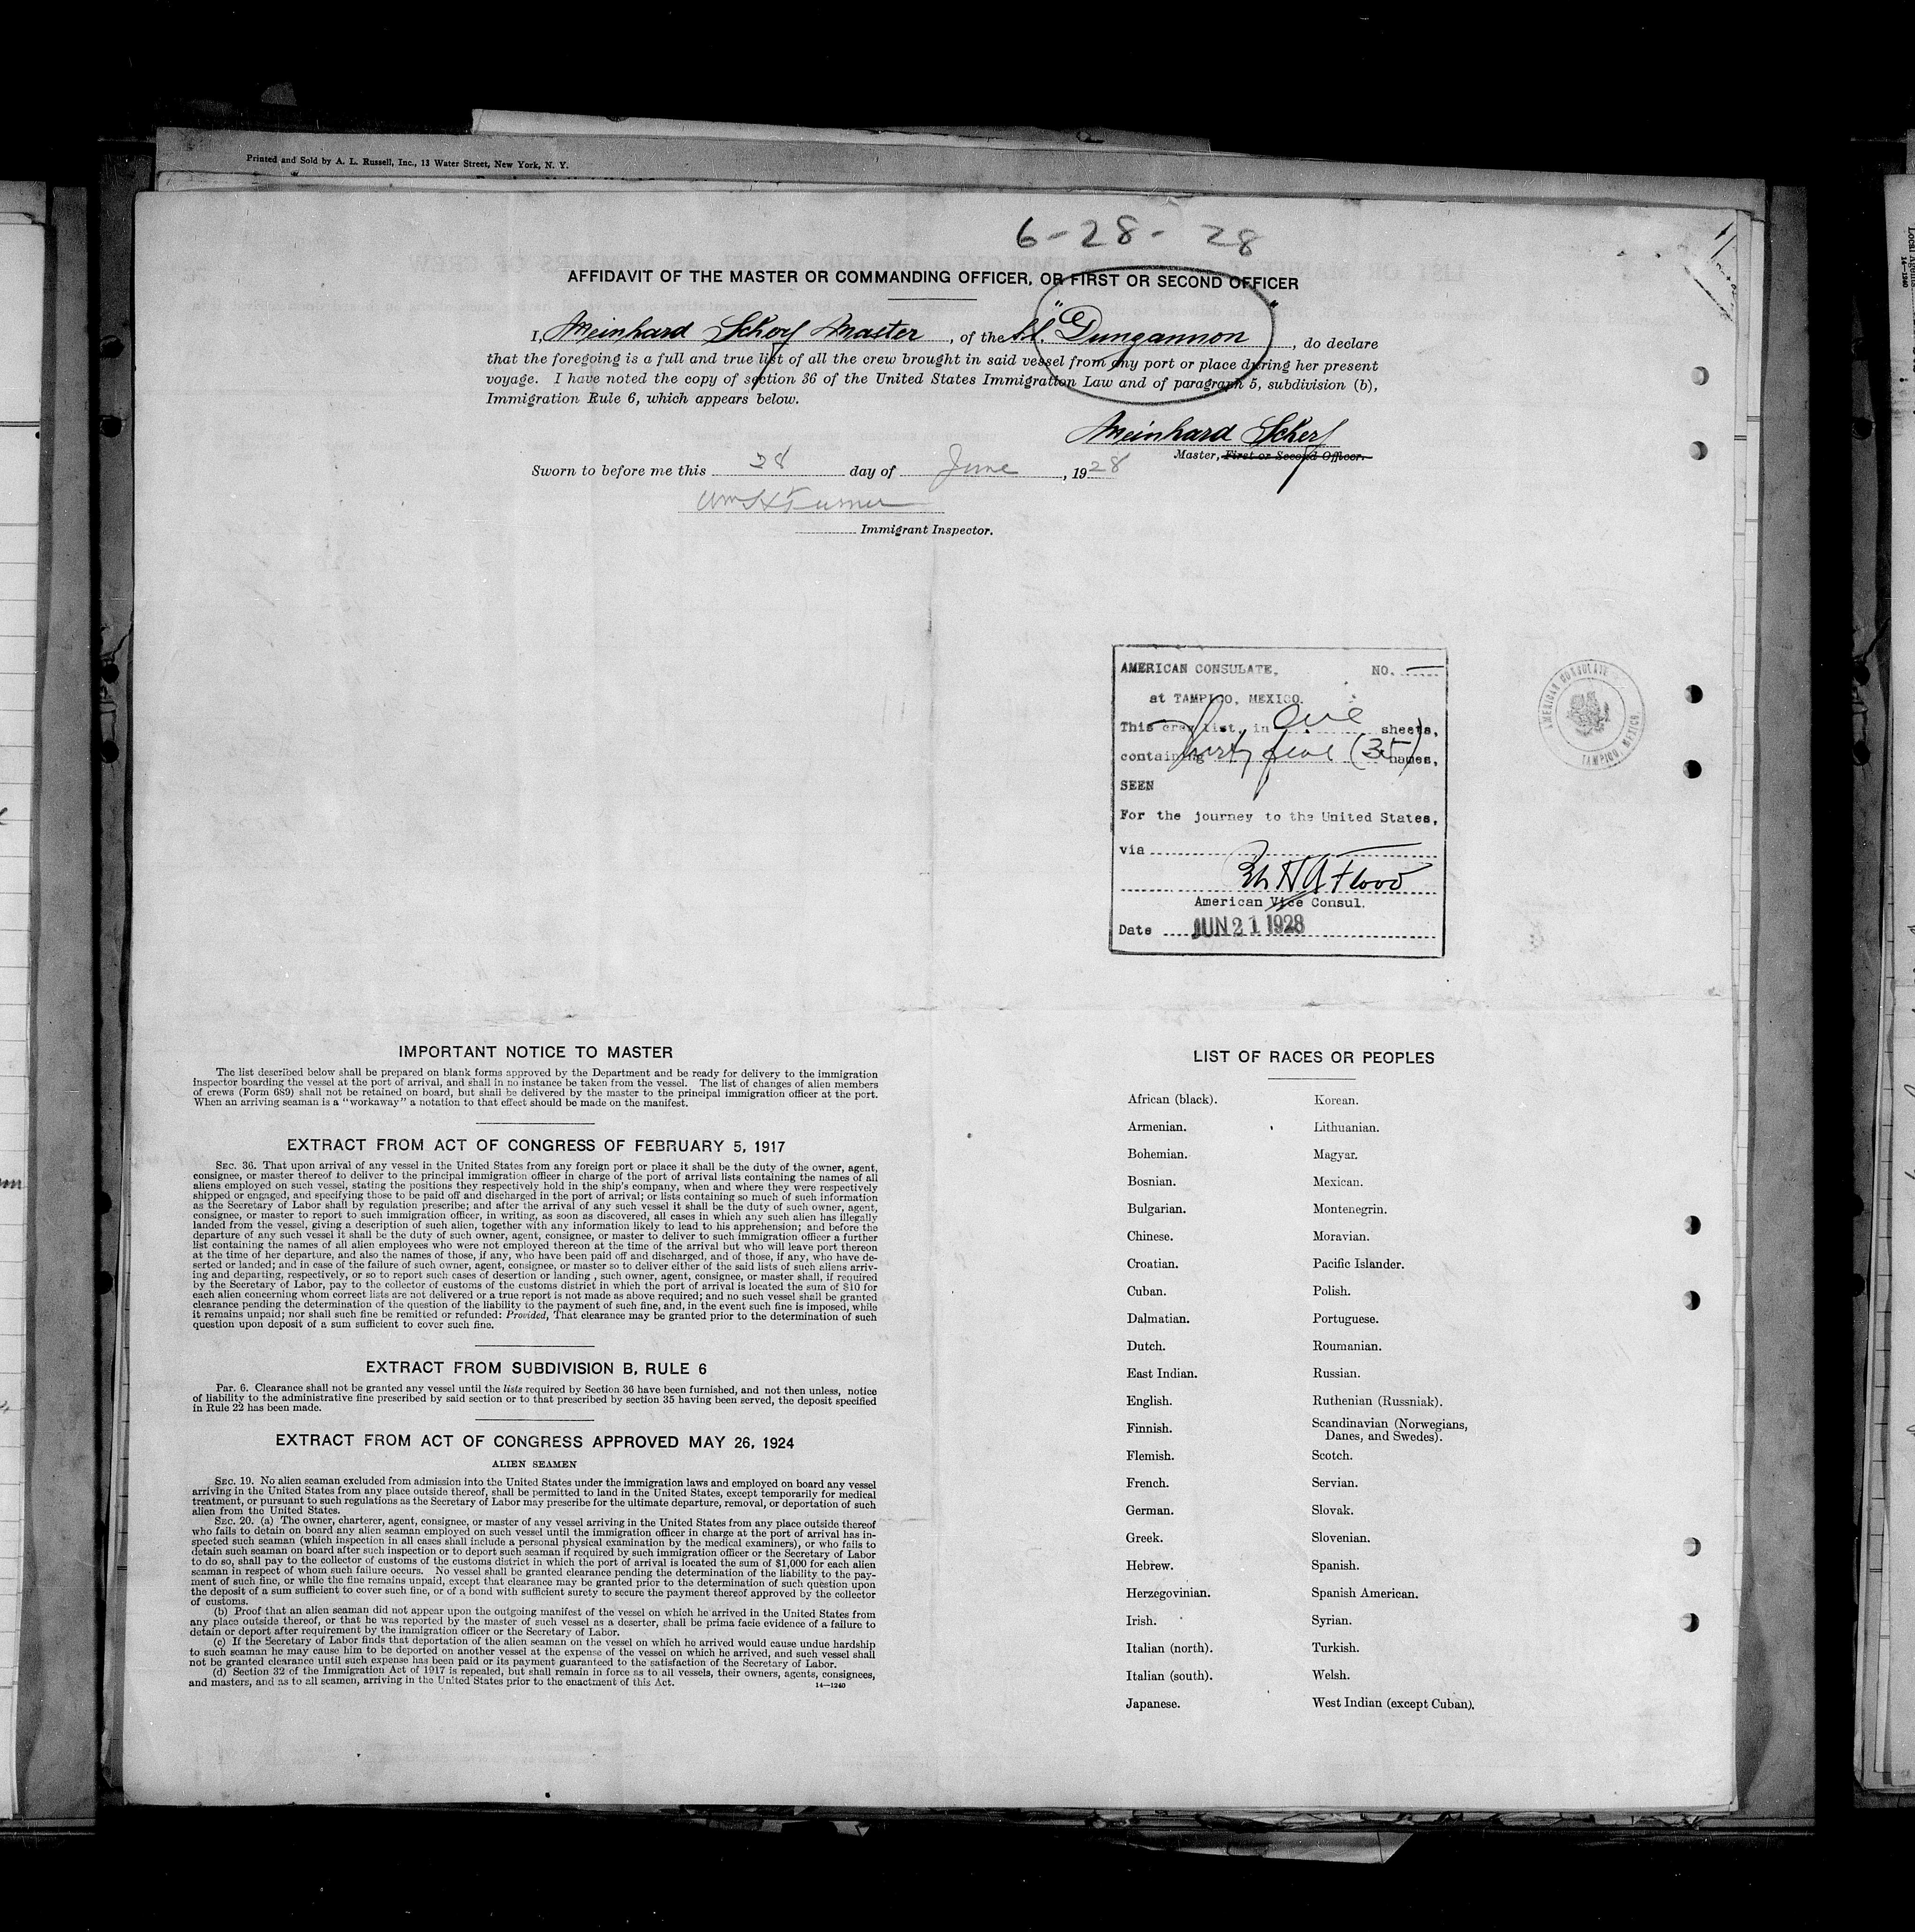 Printed and Sold by A. L. Russell, Inc., 13 Water Street, New York, N. Y.
6-28-28
AFFIDAVIT OF THE MASTER OR COMMANDING OFFICER, OR FIRST OR SECOND OFFICER
I, Meinhard Scherf Master, of the "Dungannon", do declare
that the foregoing is a full and true list of all the crew brought in said vessel from any port or place during her present
voyage. I have noted the copy of section 36 of the United States Immigration Law and of paragraph 5, subdivision (b),
Immigration Rule 6, which appears below.
Meinhard Scherf
Master, First or Second Officer.
Sworn to before me this 28 day of June, 1928
Wm H Turner
Immigrant Inspector.
AMERICAN CONSULATE, NO.
at TAMPICO, MEXICO.
This crew list, in one sheets,
containing thirty five (35) names,
SEEN
For the journey to the United States,
via
American Vice Consul.
Date JUN 21 1928
AMERICAN CONSULATE
TAMPICO, MEXICO
IMPORTANT NOTICE TO MASTER
The list described below shall be prepared on blank forms approved by the Department and be ready for delivery to the immigration
inspector boarding the vessel at the port of arrival, and shall in no instance be taken from the vessel. The list of changes of alien members
of crews (Form 689) shall not be retained on board, but shall be delivered by the master to the principal immigration officer at the port.
When an arriving seaman is a "workaway" a notation to that effect should be made on the manifest.
EXTRACT FROM ACT OF CONGRESS OF FEBRUARY 5, 1917
SEC. 36. That upon arrival of any vessel in the United States from any foreign port or place it shall be the duty of the owner, agent,
consignee, or master thereof to deliver to the principal immigration officer in charge of the port of arrival lists containing the names of all
aliens employed on such vessel, stating the positions they respectively hold in the ship's company, when and where they were respectively
shipped or engaged, and specifying those to be paid off and discharged in the port of arrival; or lists containing so much of such information
as the Secretary of Labor shall by regulation prescribe; and after the arrival of any such vessel it shall be the duty of such owner, agent,
consignee, or master to report to such immigration officer, in writing, as soon as discovered, all cases in which any such alien has illegally
landed from the vessel, giving a description of such alien, together with any information likely to lead to his apprehension; and before the
departure of any such vessel it shall be the duty of such owner, agent, consignee, or master to deliver to such immigration officer a further
list containing the names of all alien employees who were not employed thereon at the time of the arrival but who will leave port thereon
at the time of her departure, and also the names of those, if any, who have been paid off and discharged, and of those, if any, who have de-
serted or landed; and in case of the failure of such owner, agent, consignee, or master so to deliver either of the said lists of such aliens arriv-
ing and departing, respectively, or so to report such cases of desertion or landing , such owner, agent, consignee, or master shall, if required
by the Secretary of Labor, pay to the collector of customs of the customs district in which the port of arrival is located the sum of $10 for
each alien concerning whom correct lists are not delivered or a true report is not made as above required; and no such vessel shall be granted
clearance pending the determination of the question of the liability to the payment of such fine, and, in the event such fine is imposed, while
it remains unpaid; nor shall such fine be remitted or refunded: Provided, That clearance may be granted prior to the determination of such
question upon deposit of a sum sufficient to cover such fine.
EXTRACT FROM SUBDIVISION B, RULE 6
Par. 6. Clearance shall not be granted any vessel until the lists required by Section 36 have been furnished, and not then unless, notice
of liability to the administrative fine prescribed by said section or to that prescribed by section 35 having been served, the deposit specified
in Rule 22 has been made.
EXTRACT FROM ACT OF CONGRESS APPROVED MAY 26, 1924
ALIEN SEAMEN
SEC. 19. No alien seaman excluded from admission into the United States under the immigration laws and employed on board any vessel
arriving in the United States from any place outside thereof, shall be permitted to land in the United States, except temporarily for medical
treatment, or pursuant to such regulations as the Secretary of Labor may prescribe for the ultimate departure, removal, or deportation of such
alien from the United States.
SEC. 20. (a) The owner, charterer, agent, consignee, or master of any vessel arriving in the United States from any place outside thereof
who fails to detain on board any alien seaman employed on such vessel until the immigration officer in charge at the port of arrival has in-
spected such seaman (which inspection in all cases shall include a personal physical examination by the medical examiners), or who fails to
detain such seaman on board after such inspection or to deport such seaman if required by such immigration officer or the Secretary of Labor
to do so, shall pay to the collector of customs of the customs district in which the port of arrival is located the sum of $1,000 for each alien
seaman in respect of whom such failure occurs. No vessel shall be granted clearance pending the determination of the liability to the pay-
ment of such fine, or while the fine remains unpaid, except that clearance may be granted prior to the determination of such question upon
the deposit of a sum sufficient to cover such fine, or of a bond with sufficient surety to secure the payment thereof approved by the collector
of customs.
(b) Proof that an alien seaman did not appear upon the outgoing manifest of the vessel on which he arrived in the United States from
any place outside thereof, or that he was reported by the master of such vessel as a deserter, shall be prima facie evidence of a failure to
detain or deport after requirement by the immigration officer or the Secretary of Labor.
(c) If the Secretary of Labor finds that deportation of the alien seaman on the vessel on which he arrived would cause undue hardship
to such seaman he may cause him to be deported on another vessel at the expense of the vessel on which he arrived, and such vessel shall
not be granted clearance until such expense has been paid or its payment guaranteed to the satisfaction of the Secretary of Labor.
(d) Section 32 of the Immigration Act of 1917 is repealed, but shall remain in force as to all vessels, their owners, agents, consignees,
and masters, and as to all seamen, arriving in the United States prior to the enactment of this Act.
14—1240
LIST OF RACES OR PEOPLES
African (black).
Armenian.
Bohemian.
Bosnian.
Bulgarian.
Chinese.
Croatian.
Cuban.
Dalmatian.
Dutch.
East Indian.
English.
Finnish.
Flemish.
French.
German.
Greek.
Hebrew.
Herzegovinian.
Irish.
Italian (north).
Italian (south).
Japanese.
Korean.
Lithuanian.
Magyar.
Mexican.
Montenegrin.
Moravian.
Pacific Islander.
Polish.
Portuguese.
Roumanian.
Russian.
Ruthenian (Russniak).
Scandinavian (Norwegians,
Danes, and Swedes).
Scotch.
Servian.
Slovak.
Slovenian.
Spanish.
Spanish American.
Syrian.
Turkish.
Welsh.
West Indian (except Cuban).